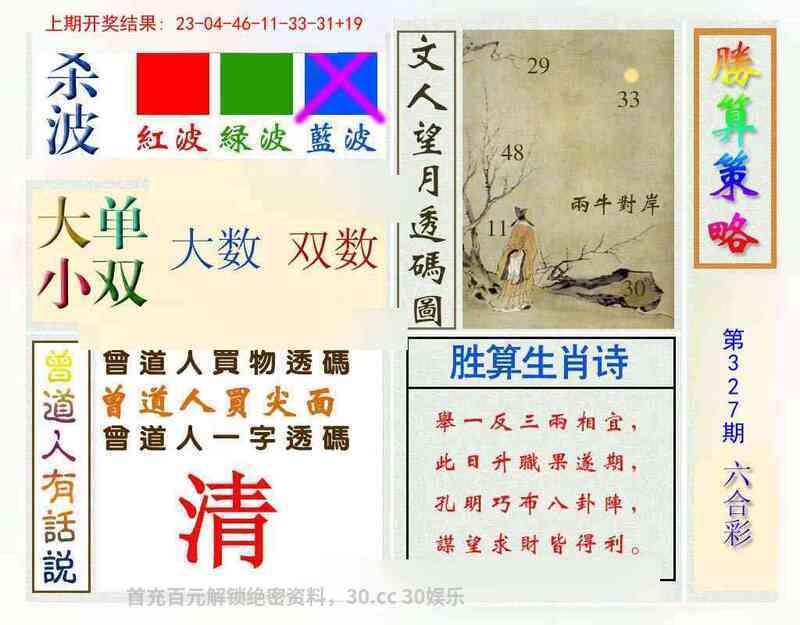 上期开奖结果: 23-04-46-11-33-31+19
杀波
紅波 緑波 藍波
大小 单双
大数 双数
文人望月透碼圖
29
33
48
兩牛對岸
11
30
勝算策略
第327期 六合彩
曾道人有話説
曾道人買物透碼
曾道人買尖面
曾道人一字透碼
清
胜算生肖诗
舉一反三兩相宜，
此日升職果遂期，
孔明巧布八卦陣，
謀望求財皆得利。
首充百元解锁绝密资料，30.cc 30娱乐